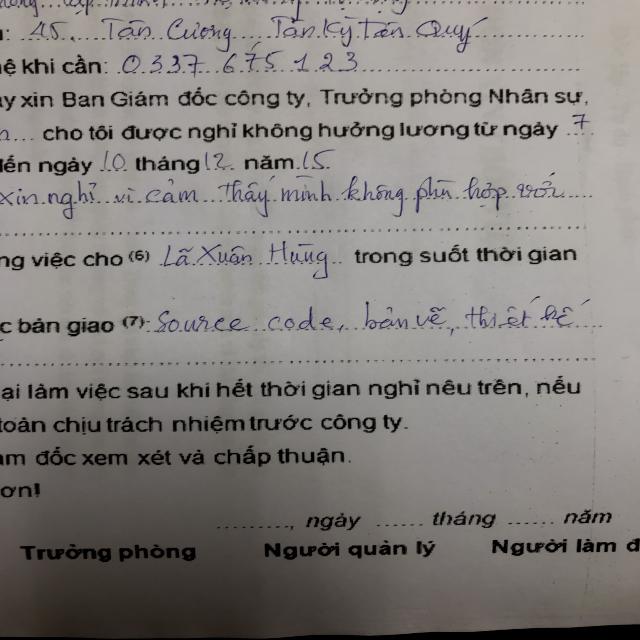 : 45. Tân Cương Tân Kỳ Tân Quý
hệ khi cần: 0337 675 123
ày xin Ban Giám đốc công ty, Trưởng phòng Nhân sự,
cho tôi được nghỉ không hưởng lương từ ngày 7
đến ngày 10 tháng 12 năm 15
xin nghỉ vì cảm thấy mình không phù hợp với
ng việc cho (6) Lã Xuân Hùng trong suốt thời gian
c bản giao (7): Source code, bản vẽ, thiết kế
ại làm việc sau khi hết thời gian nghỉ nêu trên, nếu
toàn chịu trách nhiệm trước công ty.
ám đốc xem xét và chấp thuận.
ơn!
........., ngày ...... tháng ...... năm
Trưởng phòng Người quản lý Người làm đ